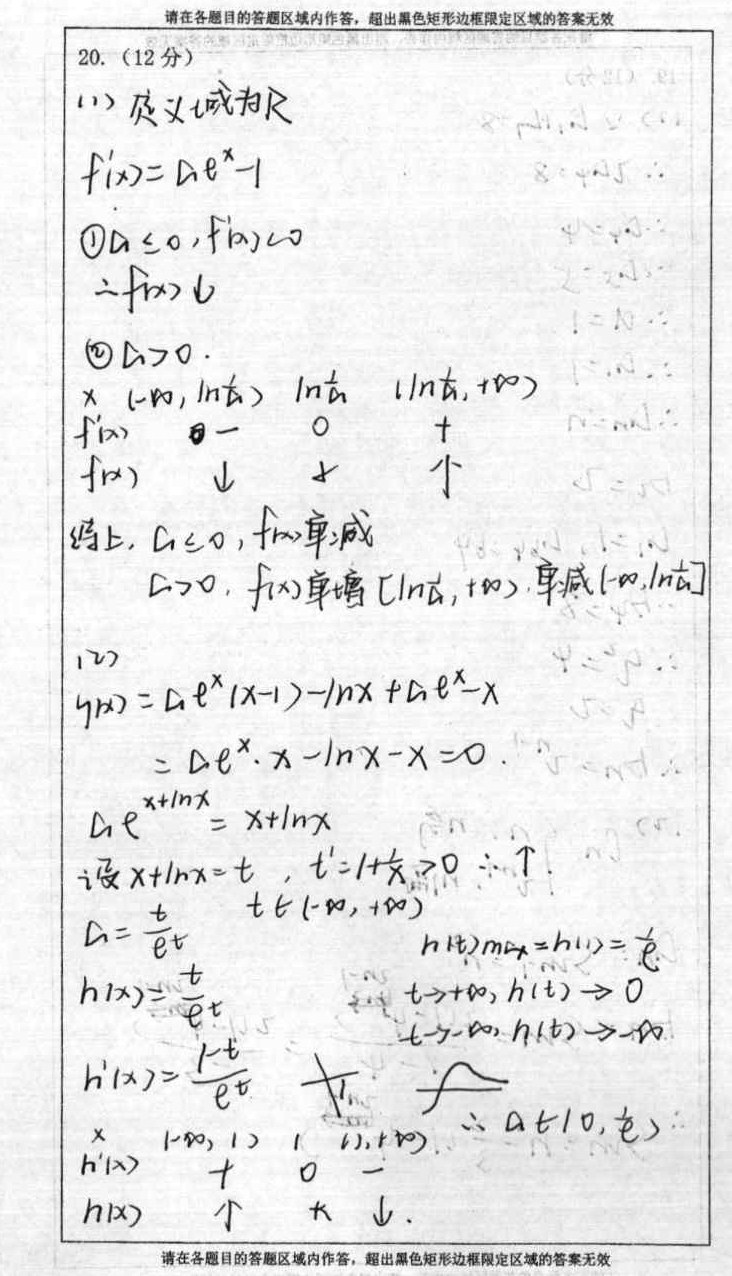 请在各题目的答题区域内作答，超出黑色矩形边框限定区域的答案无效
20.（12分）
(1) 定义域为R
f'(x)=ae^x-1
①a≤0, f'(x)<0
∴f(x)↓
②a>0.
x (-∞, ln1/a) ln1/a (ln1/a, +∞)
f'(x) - 0 +
f(x) ↓ ↑
综上, a≤0, f(x)单减
a>0, f(x)单增[ln1/a, +∞), 单减(-∞, ln1/a]
(2)
g(x)=ae^x(x-1)-lnx+ae^x-x
=ae^x·x-lnx-x=0.
ae^(x+lnx)=x+lnx
设x+lnx=t, t'=1+1/x>0 ∴↑.
t∈(-∞, +∞)
a=t/e^t
h(x)=t/e^t
h'(x)=(1-t)/e^t
x (-∞, 1) 1 (1, +∞)
h'(x) + 0 -
h(x) ↑ ↓.
h(t)max=h(1)=1/e
t→+∞, h(t)→0
t→-∞, h(t)→-∞
∴a∈(0, 1/e)
请在各题目的答题区域内作答，超出黑色矩形边框限定区域的答案无效